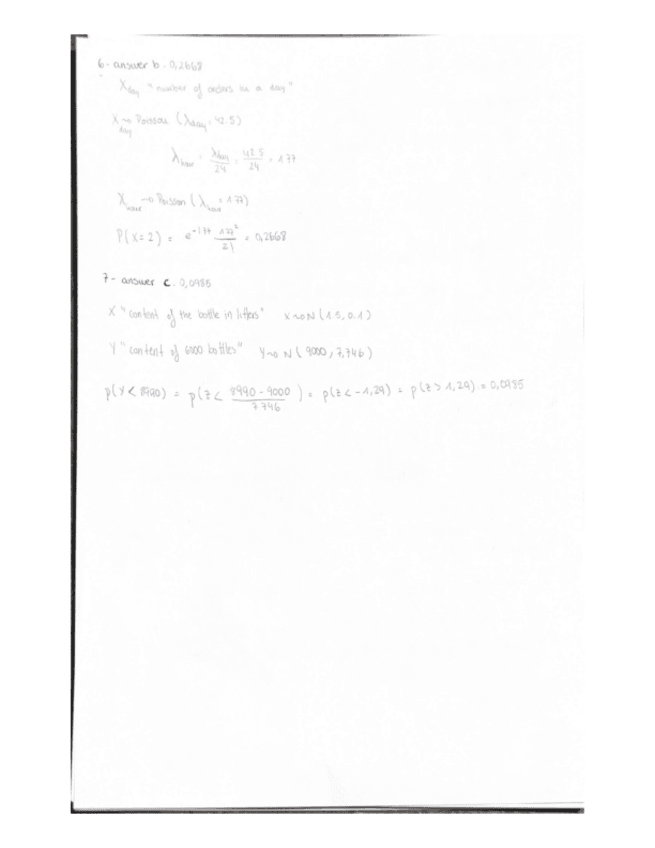 6- answer b. 0,2668
X day "number of orders in a day"
X day ~ Poisson (λ day = 42.5)
λ hour = λ day / 24 = 42.5 / 24 = 1.77
X hour ~ Poisson (λ hour = 1.77)
P(X=2) = e^-1.77 1.77² / 2! = 0,2668
7- answer c. 0,0985
X "content of the bottle in litters" X ~ N(1.5, 0.1)
Y "content of 6000 bottles" Y ~ N(9000, 7,746)
p(Y < 8990) = p(Z < 8990 - 9000 / 7.746) = p(Z < -1,29) = p(Z > 1,29) = 0,0985